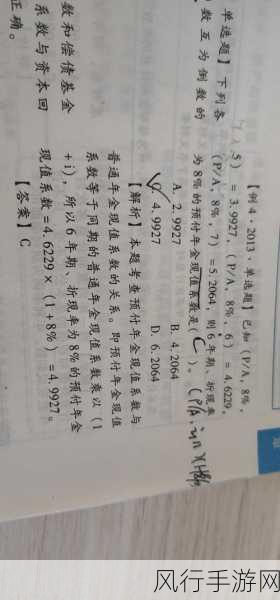 单选题】下列各
数互为倒数的
数和偿债基金
系数与资本回
正确。
【例4·2013·单选题】已知（P/A，8%，
5）=3.9927，（P/A，8%，6）=4.6229，
（P/A，8%，7）=5.2064，则6年期、折现率
为8%的预付年金现值系数是（C）。(P/A,i,n)
A. 2.9927 B. 4.2064
C. 4.9927 D. 6.2064
【解析】本题考查预付年金现值系数与
普通年金现值系数的关系。即预付年金现值
系数等于同期的普通年金现值系数乘以（1
+i），所以6年期、折现率为8%的预付年金
现值系数=4.6229×（1+8%）=4.9927。
【答案】C
风行手游网